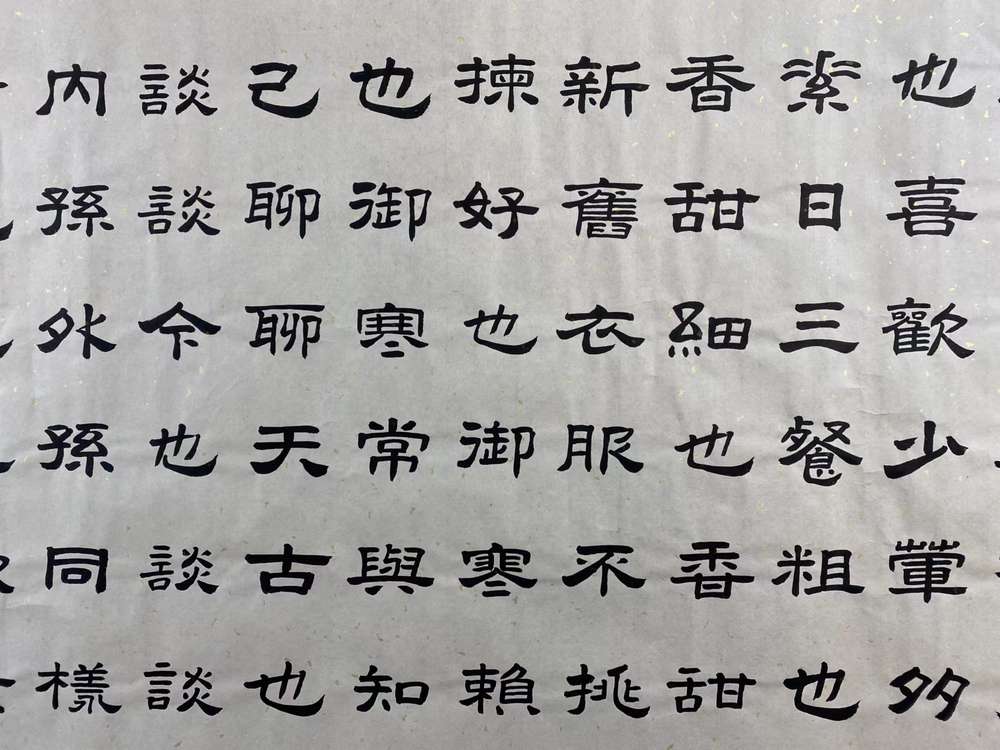 也喜歡少葷多
素日三餐粗也
香甜細也香甜
新舊衣服不挑
揀好也御寒賴
也御寒常與知
己聊聊天古也
談談今也談談
內孫外孫同樣